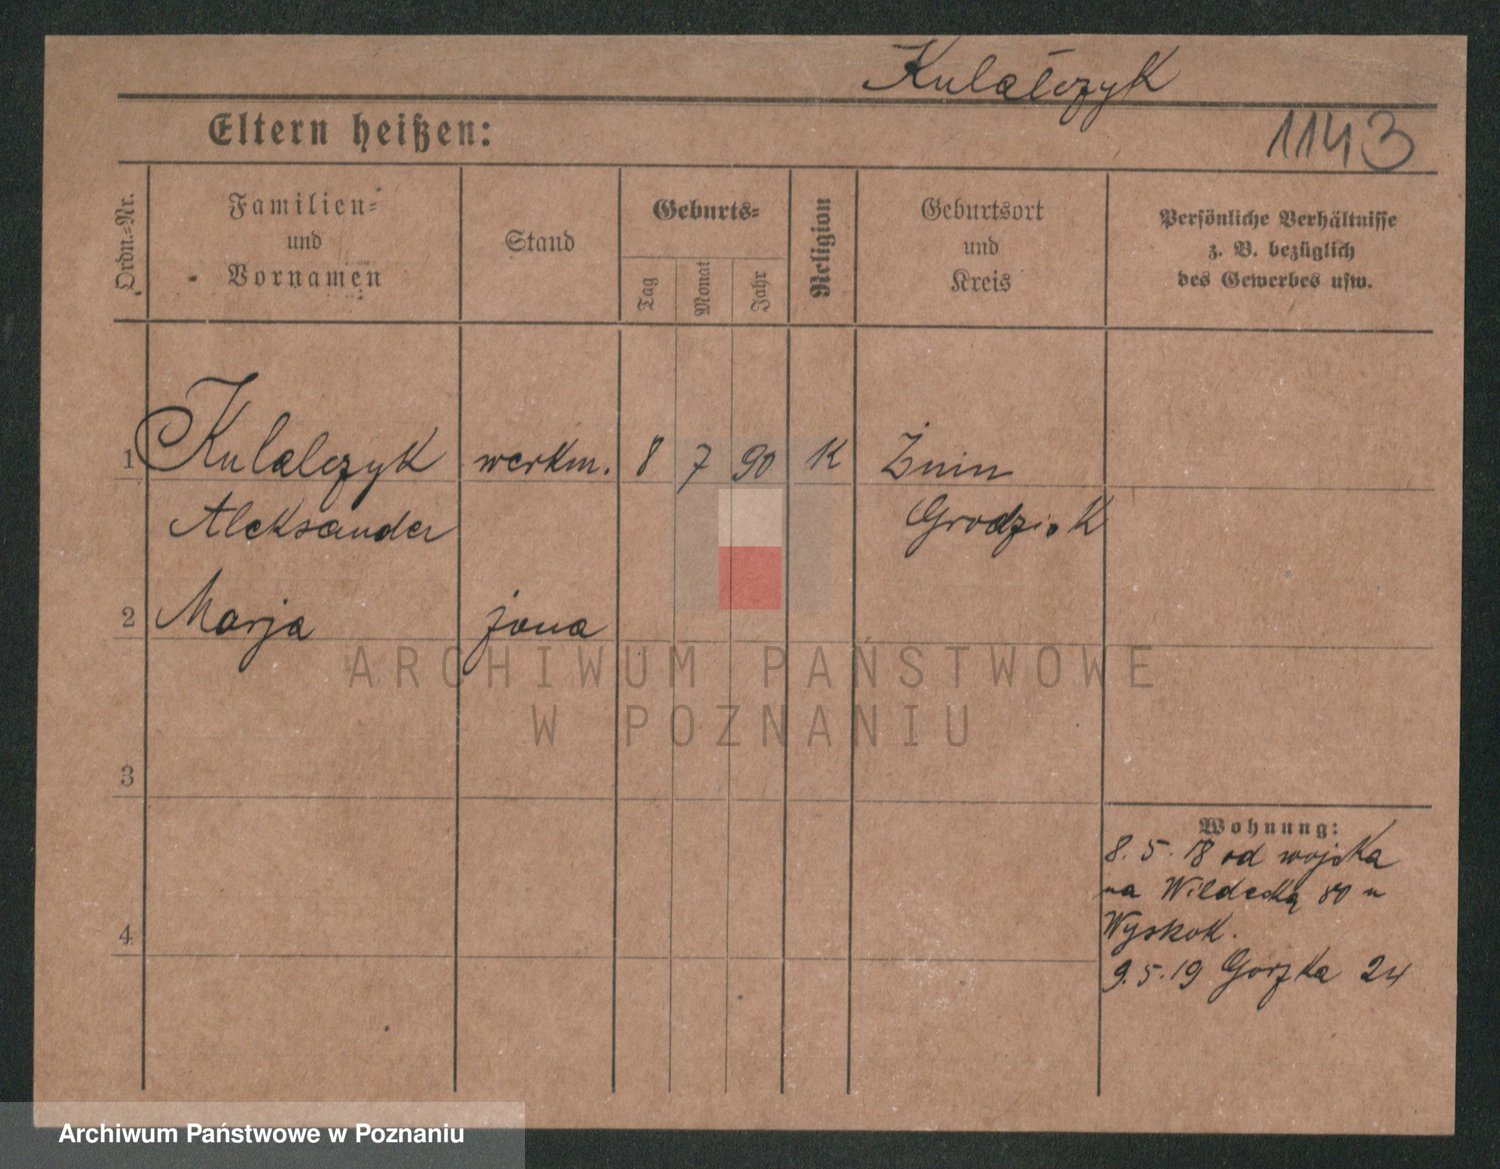 Kulalczyk
Eltern heißen:
1143
Ordn.-Nr.
Familien-
und
Vornamen
Stand
Geburts-
Tag
Monat
Jahr
Religion
Geburtsort
und
Kreis
Persönliche Verhältnisse
z. B. bezüglich
des Gewerbes usw.
1 Kulalczyk werkm. 8 7 90 K Żnin
Aleksander Grodzisk
2 Marja żona
3
4
Wohnung:
8.5.18 od wojska
na Wildecką 80 u
Wyskok.
9.5.19 Gorzka 24
ARCHIWUM PAŃSTWOWE
W POZNANIU
Archiwum Państwowe w Poznaniu